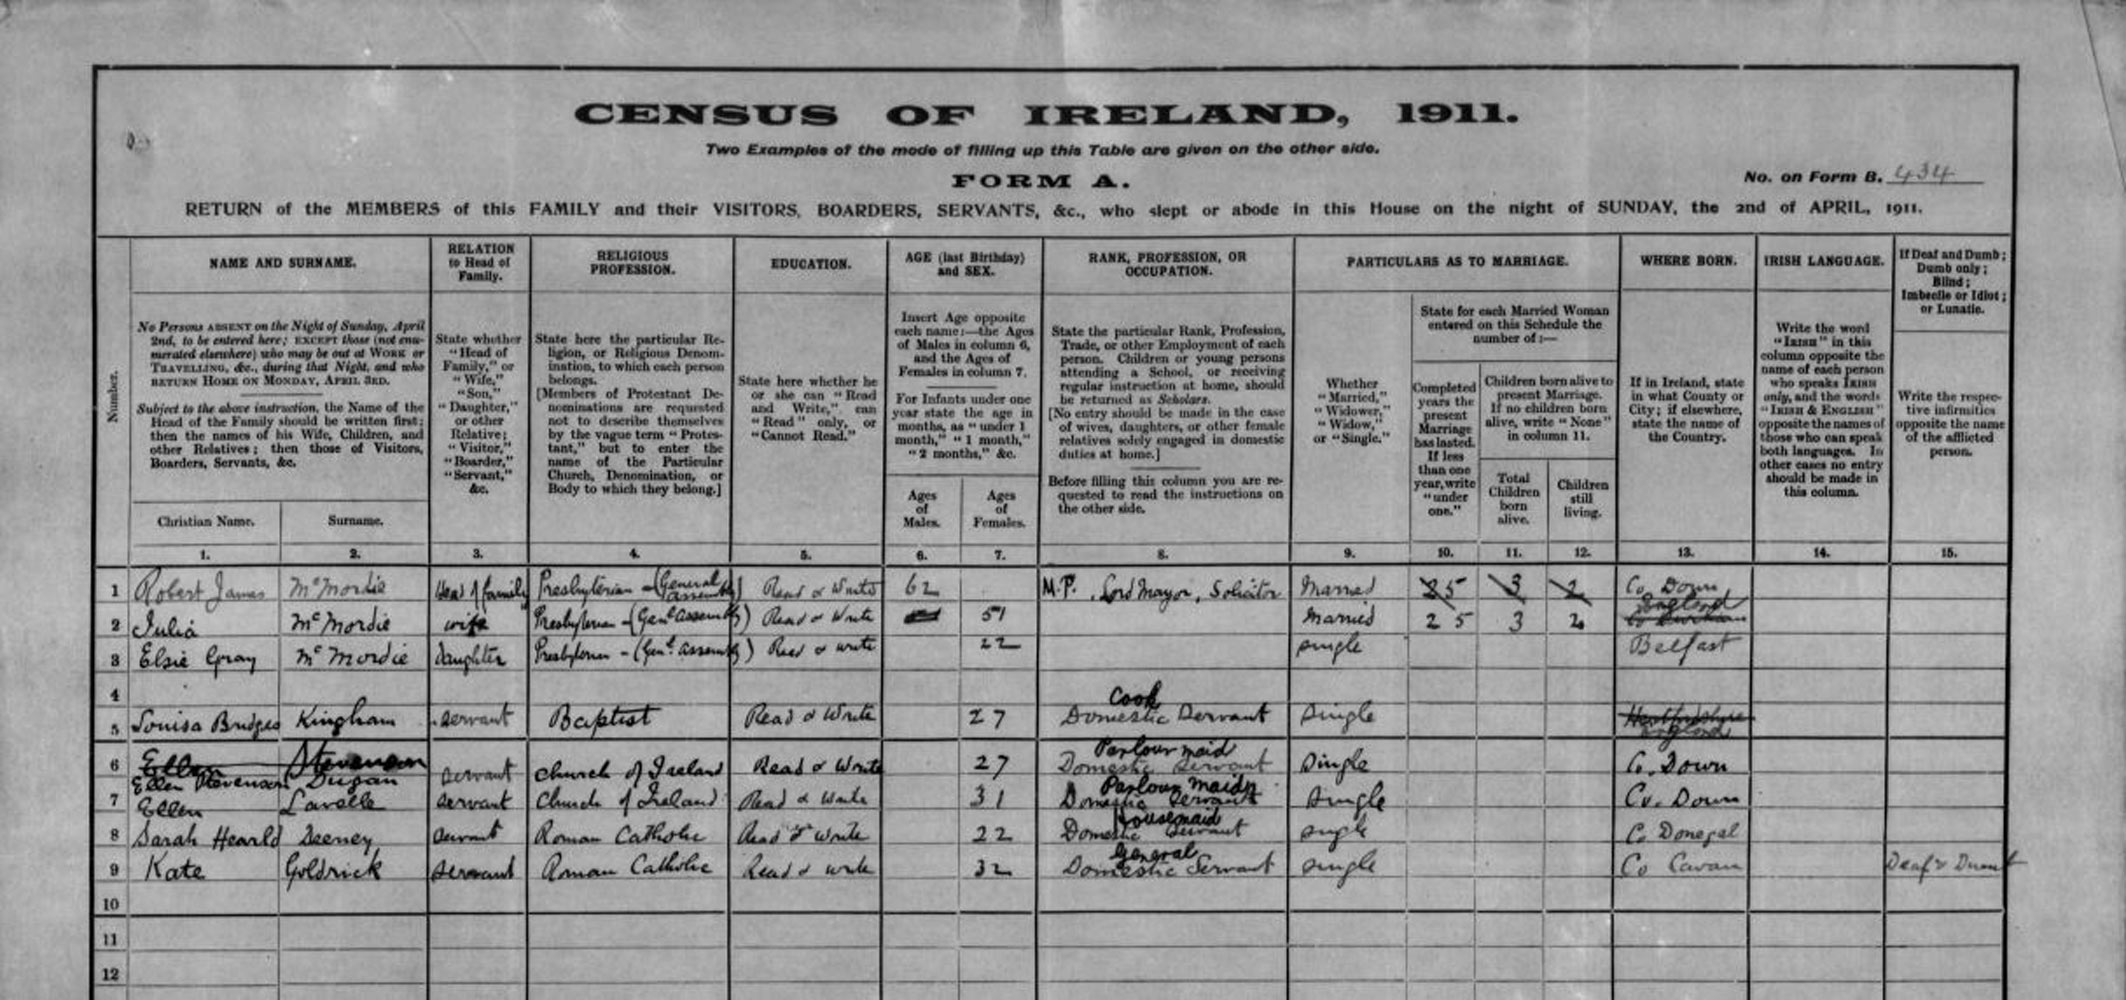 CENSUS OF IRELAND, 1911.
Two Examples of the mode of filling up this Table are given on the other side.
FORM A.
No. on Form B. 434
RETURN of the MEMBERS of this FAMILY and their VISITORS, BOARDERS, SERVANTS, &c., who slept or abode in this House on the night of SUNDAY, the 2nd of APRIL, 1911.
Number.
NAME AND SURNAME.
No Persons ABSENT on the Night of Sunday, April
2nd, to be entered here; EXCEPT those (not enu-
merated elsewhere) who may be out at WORK or
TRAVELLING, &c., during that Night, and who
RETURN HOME ON MONDAY, APRIL 3RD.
Subject to the above instruction, the Name of the
Head of the Family should be written first;
then the names of his Wife, Children, and
other Relatives; then those of Visitors,
Boarders, Servants, &c.
Christian Name.
Surname.
1.
2.
RELATION
to Head of
Family.
State whether
"Head of
Family," or
"Wife,"
"Son,"
"Daughter,"
or other
Relative;
"Visitor,"
"Boarder,"
"Servant,"
&c.
3.
RELIGIOUS
PROFESSION.
State here the particular Re-
ligion, or Religious Denom-
ination, to which each person
belongs.
[Members of Protestant De-
nominations are requested
not to describe themselves
by the vague term "Protes-
tant," but to enter the
name of the Particular
Church, Denomination, or
Body to which they belong.]
4.
EDUCATION.
State here whether he
or she can "Read
and Write," can
"Read" only, or
"Cannot Read."
5.
AGE (last Birthday)
and SEX.
Insert Age opposite
each name:—the Ages
of Males in column 6,
and the Ages of
Females in column 7.
For Infants under one
year state the age in
months, as "under 1
month," "1 month,"
"2 months," &c.
Ages
of
Males.
Ages
of
Females.
6.
7.
RANK, PROFESSION, OR
OCCUPATION.
State the particular Rank, Profession,
Trade, or other Employment of each
person. Children or young persons
attending a School, or receiving
regular instruction at home, should
be returned as Scholars.
[No entry should be made in the case
of wives, daughters, or other female
relatives solely engaged in domestic
duties at home.]
Before filling this column you are re-
quested to read the instructions on
the other side.
8.
PARTICULARS AS TO MARRIAGE.
Whether
"Married,"
"Widower,"
"Widow,"
or "Single."
9.
State for each Married Woman
entered on this Schedule the
number of:—
Completed
years the
present
Marriage
has lasted.
If less
than one
year, write
"under
one."
10.
Children born alive to
present Marriage.
If no children born
alive, write "None"
in column 11.
Total
Children
born
alive.
11.
Children
still
living.
12.
WHERE BORN.
If in Ireland, state
in what County or
City; if elsewhere,
state the name of
the Country.
13.
IRISH LANGUAGE.
Write the word
"IRISH" in this
column opposite the
name of each person
who speaks IRISH
only, and the words
"IRISH & ENGLISH"
opposite the names of
those who can speak
both languages. In
other cases no entry
should be made in
this column.
14.
If Deaf and Dumb;
Dumb only;
Blind;
Imbecile or Idiot;
or Lunatic.
Write the respec-
tive infirmities
opposite the name
of the afflicted
person.
15.
1 Robert James McMordie Head of family Presbyterian - (General Assembly) Read & Write 62 M.P., Lord Mayor, Solicitor Married 35 3 2 Co Down
2 Julia McMordie wife Presbyterian - (Genl. Assembly) Read & Write 51 Married 25 3 2 England
3 Elsie Gray McMordie daughter Presbyterian - (Genl. Assembly) Read & write 22 single Belfast
4
Cook
5 Louisa Bridges Kingham servant Baptist Read & Write 27 Domestic Servant single Hertfordshire
England
Parlour maid
6 Ellen Stevenson servant Church of Ireland Read & Write 27 Domestic Servant Single Co. Down
Ellen Stevenson Dugan
Parlour maid
7 Ellen Lavelle servant Church of Ireland Read & Write 31 Domestic Servant Single Co. Down
Housemaid
8 Sarah Hearld Deeney servant Roman Catholic Read & Write 22 Domestic Servant single Co Donegal
General
9 Kate Goldrick servant Roman Catholic Read & write 32 Domestic Servant single Co Cavan Deaf & Dumb
10
11
12